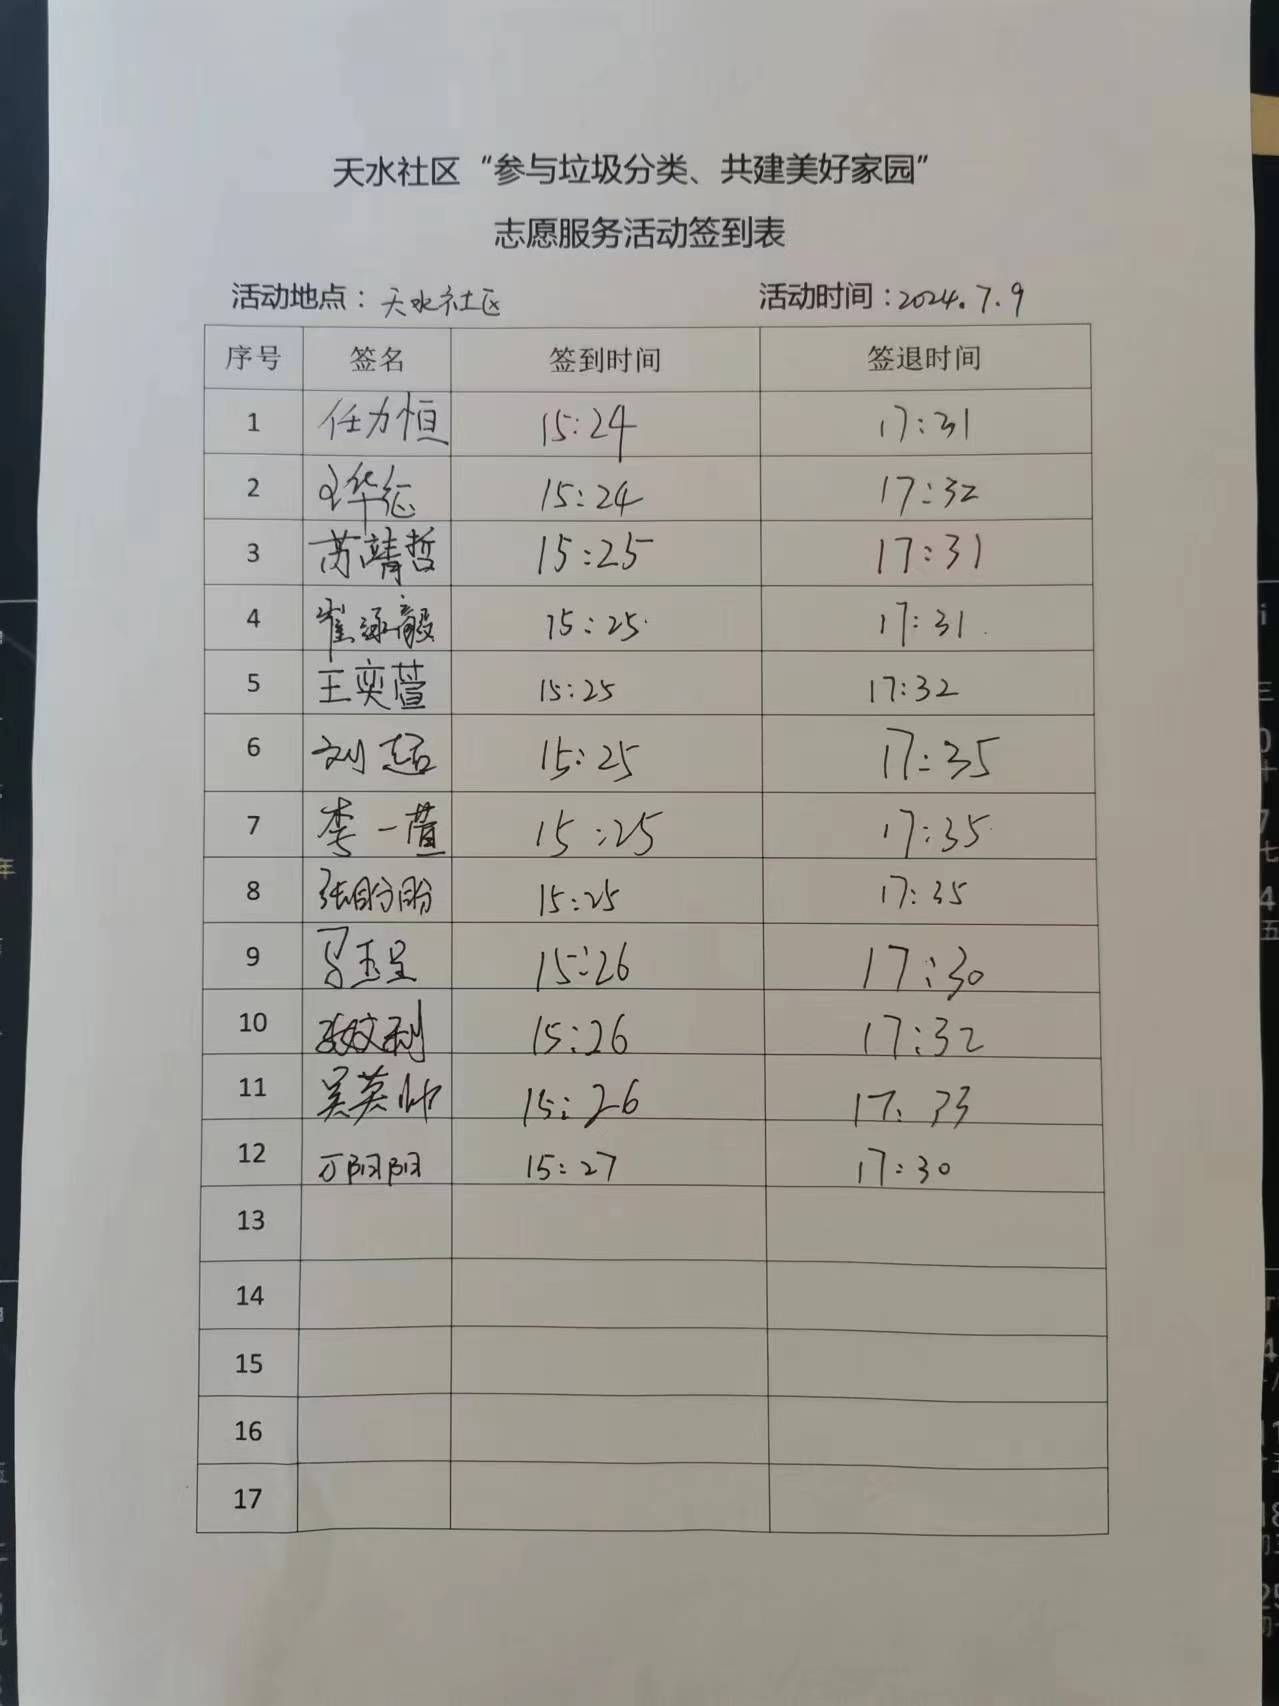 天水社区“参与垃圾分类、共建美好家园”
志愿服务活动签到表
活动地点：天水社区 活动时间：2024.7.9
序号 签名 签到时间 签退时间
1 任力恒 15:24 17:31
2 华征 15:24 17:32
3 芮靖哲 15:25 17:31
4 崔泳毅 15:25 17:31
5 王奕萱 15:25 17:32
6 刘超 15:25 17:35
7 李一萱 15:25 17:35
8 张盼盼 15:25 17:35
9 马玉呈 15:26 17:30
10 15:26 17:32
11 吴英帅 15:26 17:33
12 丁阳阳 15:27 17:30
13
14
15
16
17